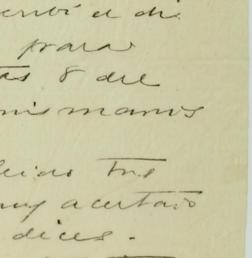 escribí el di
para
tas 8 del
mis manos
leido tus
muy acertado
dices.